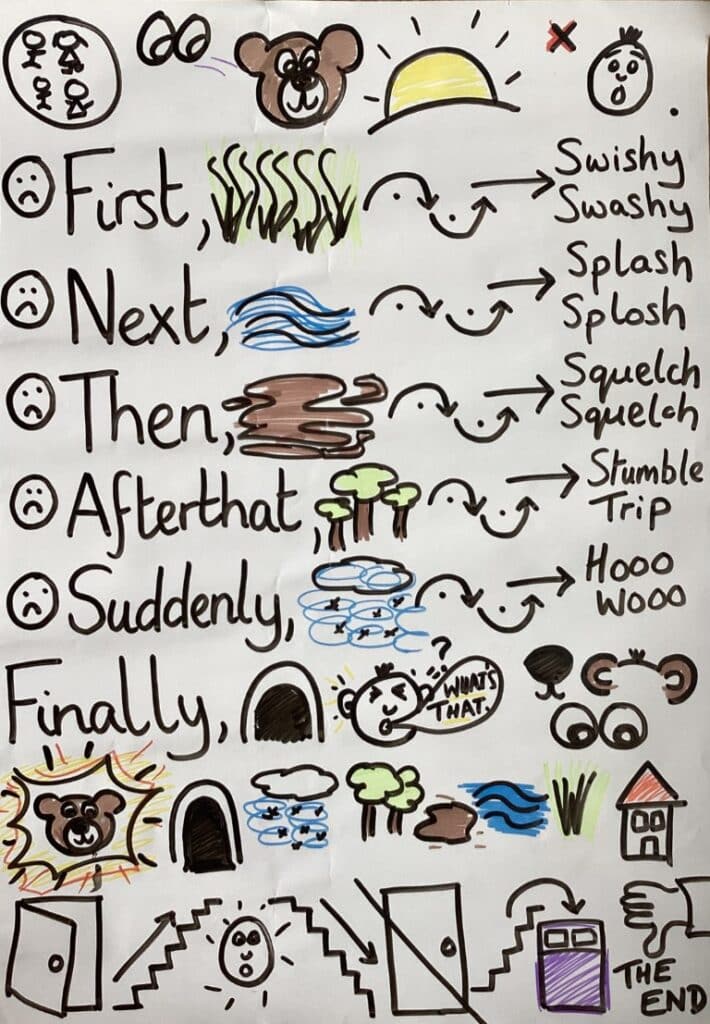 First,
Swishy
Swashy
Next,
Splash
Splosh
Then,
Squelch
Squelch
Afterthat,
Stumble
Trip
Suddenly,
Hooo
Wooo
Finally,
?
WHAT'S
THAT.
THE
END